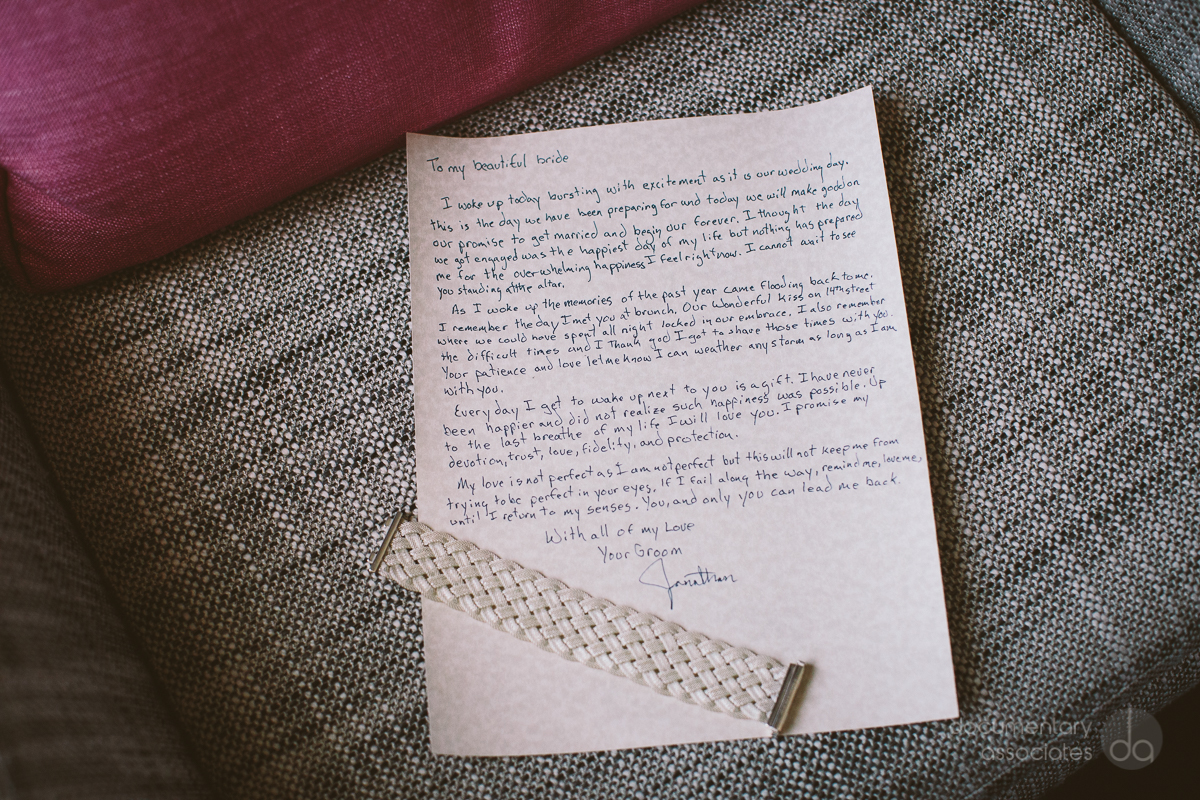 To my beautiful bride
I woke up today bursting with excitement as it is our wedding day.
this is the day we have been preparing for and today we will make good on
our promise to get married and begin our forever. I thought the day
we got engaged was the happiest day of my life but nothing has prepared
me for the overwhelming happiness I feel right now. I cannot wait to see
you standing at the altar.
As I woke up the memories of the past year came flooding back to me.
I remember the day I met you at brunch. Our Wonderful kiss on 14th street
where we could have spent all night locked in our embrace. I also remember
the difficult times and I Thank god I got to share those times with you.
Your patience and love let me know I can weather any storm as long as I am
with you.
Every day I get to wake up next to you is a gift. I have never
been happier and did not realize such happiness was possible. Up
to the last breathe of my life I will love you. I promise my
devotion, trust, love, fidelity, and protection.
My love is not perfect as I am not perfect but this will not keep me from
trying to be perfect in your eyes. If I fail along the way, remind me, love me,
until I return to my senses. You, and only you can lead me back.
With all of my Love
Your Groom
Jonathan
documentary
associates
da